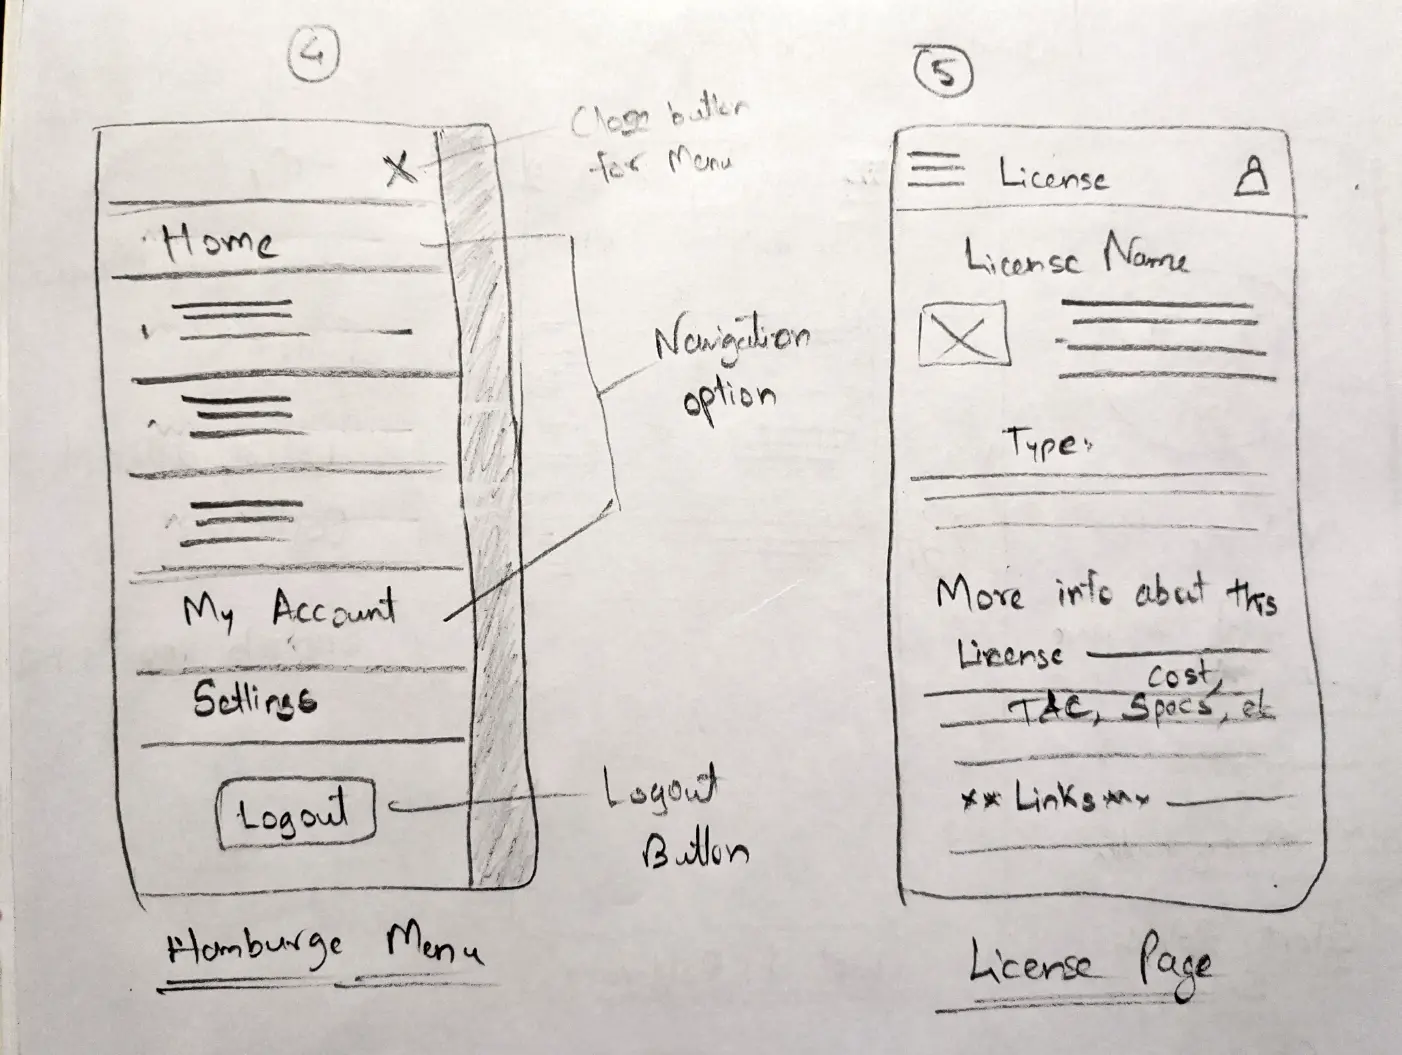 4
Close button
for Menu
X
Home
Navigation
option
My Account
Settings
Logout
Logout
Button
Hamburge Menu
5
License
License Name
Type:
More info about this
License
Cost,
TAC, Specs, etc
** Links **
License Page